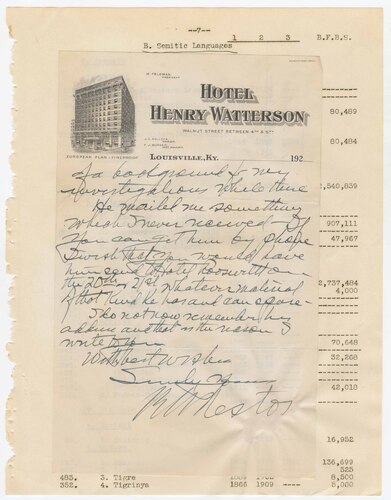 --7--
1 2 3 B.F.B.S.
B. Semitic Languages
W. FELDMAN,
HOTEL
HENRY WATTERSON
WALNUT STREET BETWEEN 4TH & 5TH
EUROPEAN PLAN - FIREPROOF
LOUISVILLE, KY. 192
80,489
80,484
of a background to my
investigations while there
He mailed me something
which I never received. If
you can get him by phone
I wish that you would have
him send to Hotel Roosevelt on
the 20th or 21st, whatever material
that he has and can spare.
I do not now remember his
address and that is the reason I
write to you
With best wishes
Sincerely Yours
2,540,839
907,111
47,967
2,737,484
4,000
70,648
32,268
42,018
16,952
136,699
525
483. 3. Tigre 8,500
352. 4. Tigrinya 1866 1909 ---- 5,000